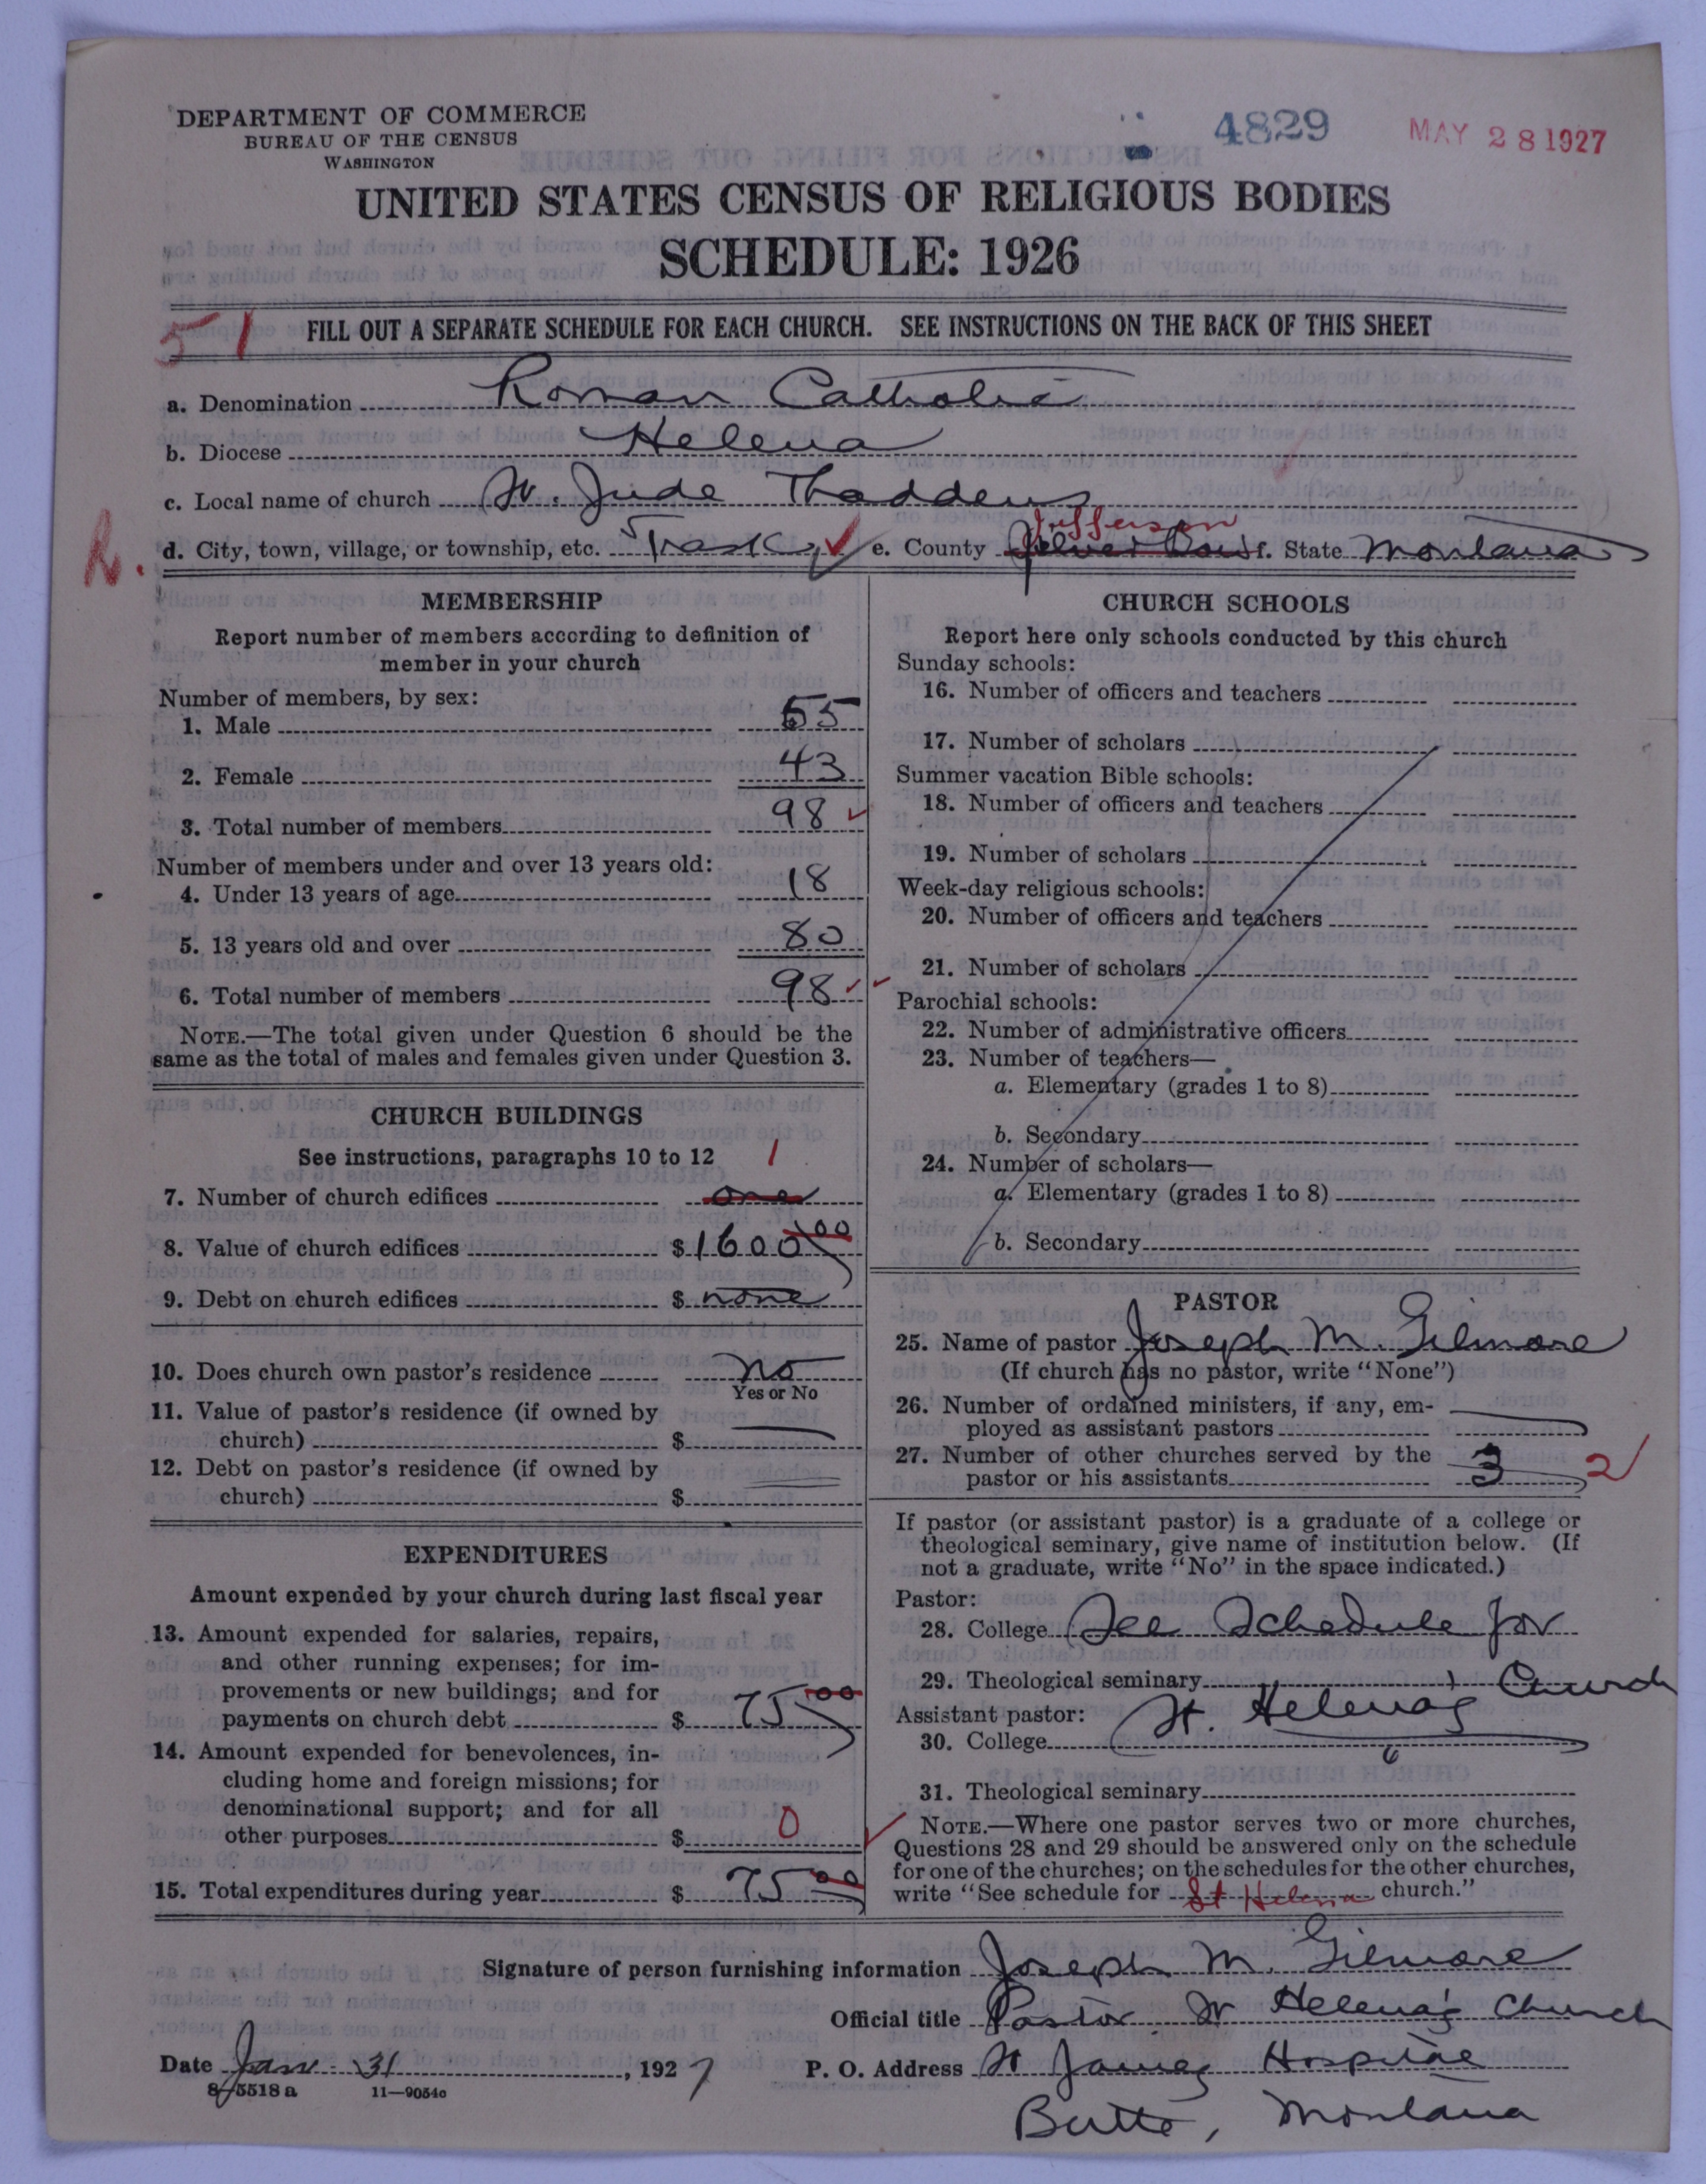 DEPARTMENT OF COMMERCE
BUREAU OF THE CENSUS
WASHINGTON
4829
MAY 28 1927
UNITED STATES CENSUS OF RELIGIOUS BODIES
SCHEDULE: 1926
51
FILL OUT A SEPARATE SCHEDULE FOR EACH CHURCH. SEE INSTRUCTIONS ON THE BACK OF THIS SHEET
a. Denomination Roman Catholic
b. Diocese Helena
c. Local name of church St. Jude Thaddeus
R. d. City, town, village, or township, etc. Trask e. County Silver Bow Jefferson f. State Montana
MEMBERSHIP
Report number of members according to definition of
member in your church
Number of members, by sex:
1. Male 55
2. Female 43
3. Total number of members 98
Number of members under and over 13 years old:
4. Under 13 years of age 18
5. 13 years old and over 80
6. Total number of members 98
NOTE.—The total given under Question 6 should be the
same as the total of males and females given under Question 3.
CHURCH BUILDINGS
See instructions, paragraphs 10 to 12 1
7. Number of church edifices one
8. Value of church edifices $ 1600 00
9. Debt on church edifices $ none
10. Does church own pastor's residence no
Yes or No
11. Value of pastor's residence (if owned by
church) $
12. Debt on pastor's residence (if owned by
church) $
EXPENDITURES
Amount expended by your church during last fiscal year
13. Amount expended for salaries, repairs,
and other running expenses; for im-
provements or new buildings; and for
payments on church debt $ 75 00
14. Amount expended for benevolences, in-
cluding home and foreign missions; for
denominational support; and for all
other purposes $ 0
15. Total expenditures during year $ 75 00
CHURCH SCHOOLS
Report here only schools conducted by this church
Sunday schools:
16. Number of officers and teachers
17. Number of scholars
Summer vacation Bible schools:
18. Number of officers and teachers
19. Number of scholars
Week-day religious schools:
20. Number of officers and teachers
21. Number of scholars
Parochial schools:
22. Number of administrative officers
23. Number of teachers—
a. Elementary (grades 1 to 8)
b. Secondary
24. Number of scholars—
a. Elementary (grades 1 to 8)
b. Secondary
PASTOR
25. Name of pastor Joseph M. Gilmore
(If church has no pastor, write "None")
26. Number of ordained ministers, if any, em-
ployed as assistant pastors
27. Number of other churches served by the
pastor or his assistants 3 2
If pastor (or assistant pastor) is a graduate of a college or
theological seminary, give name of institution below. (If
not a graduate, write "No" in the space indicated.)
Pastor:
28. College See Schedule for
29. Theological seminary Church
Assistant pastor: St. Helena's
30. College
31. Theological seminary
NOTE.—Where one pastor serves two or more churches,
Questions 28 and 29 should be answered only on the schedule
for one of the churches; on the schedules for the other churches,
write "See schedule for St Helena church."
Signature of person furnishing information Joseph M. Gilmore
Official title Pastor St Helena's Church
Date Jan. 31, 1927 P. O. Address St James Hospital
8-5518 a 11-9054c
Butte, Montana